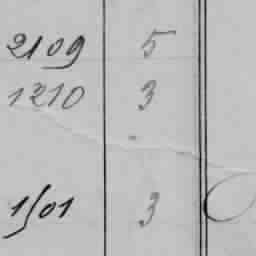 2109 5
1210 3
1501 3